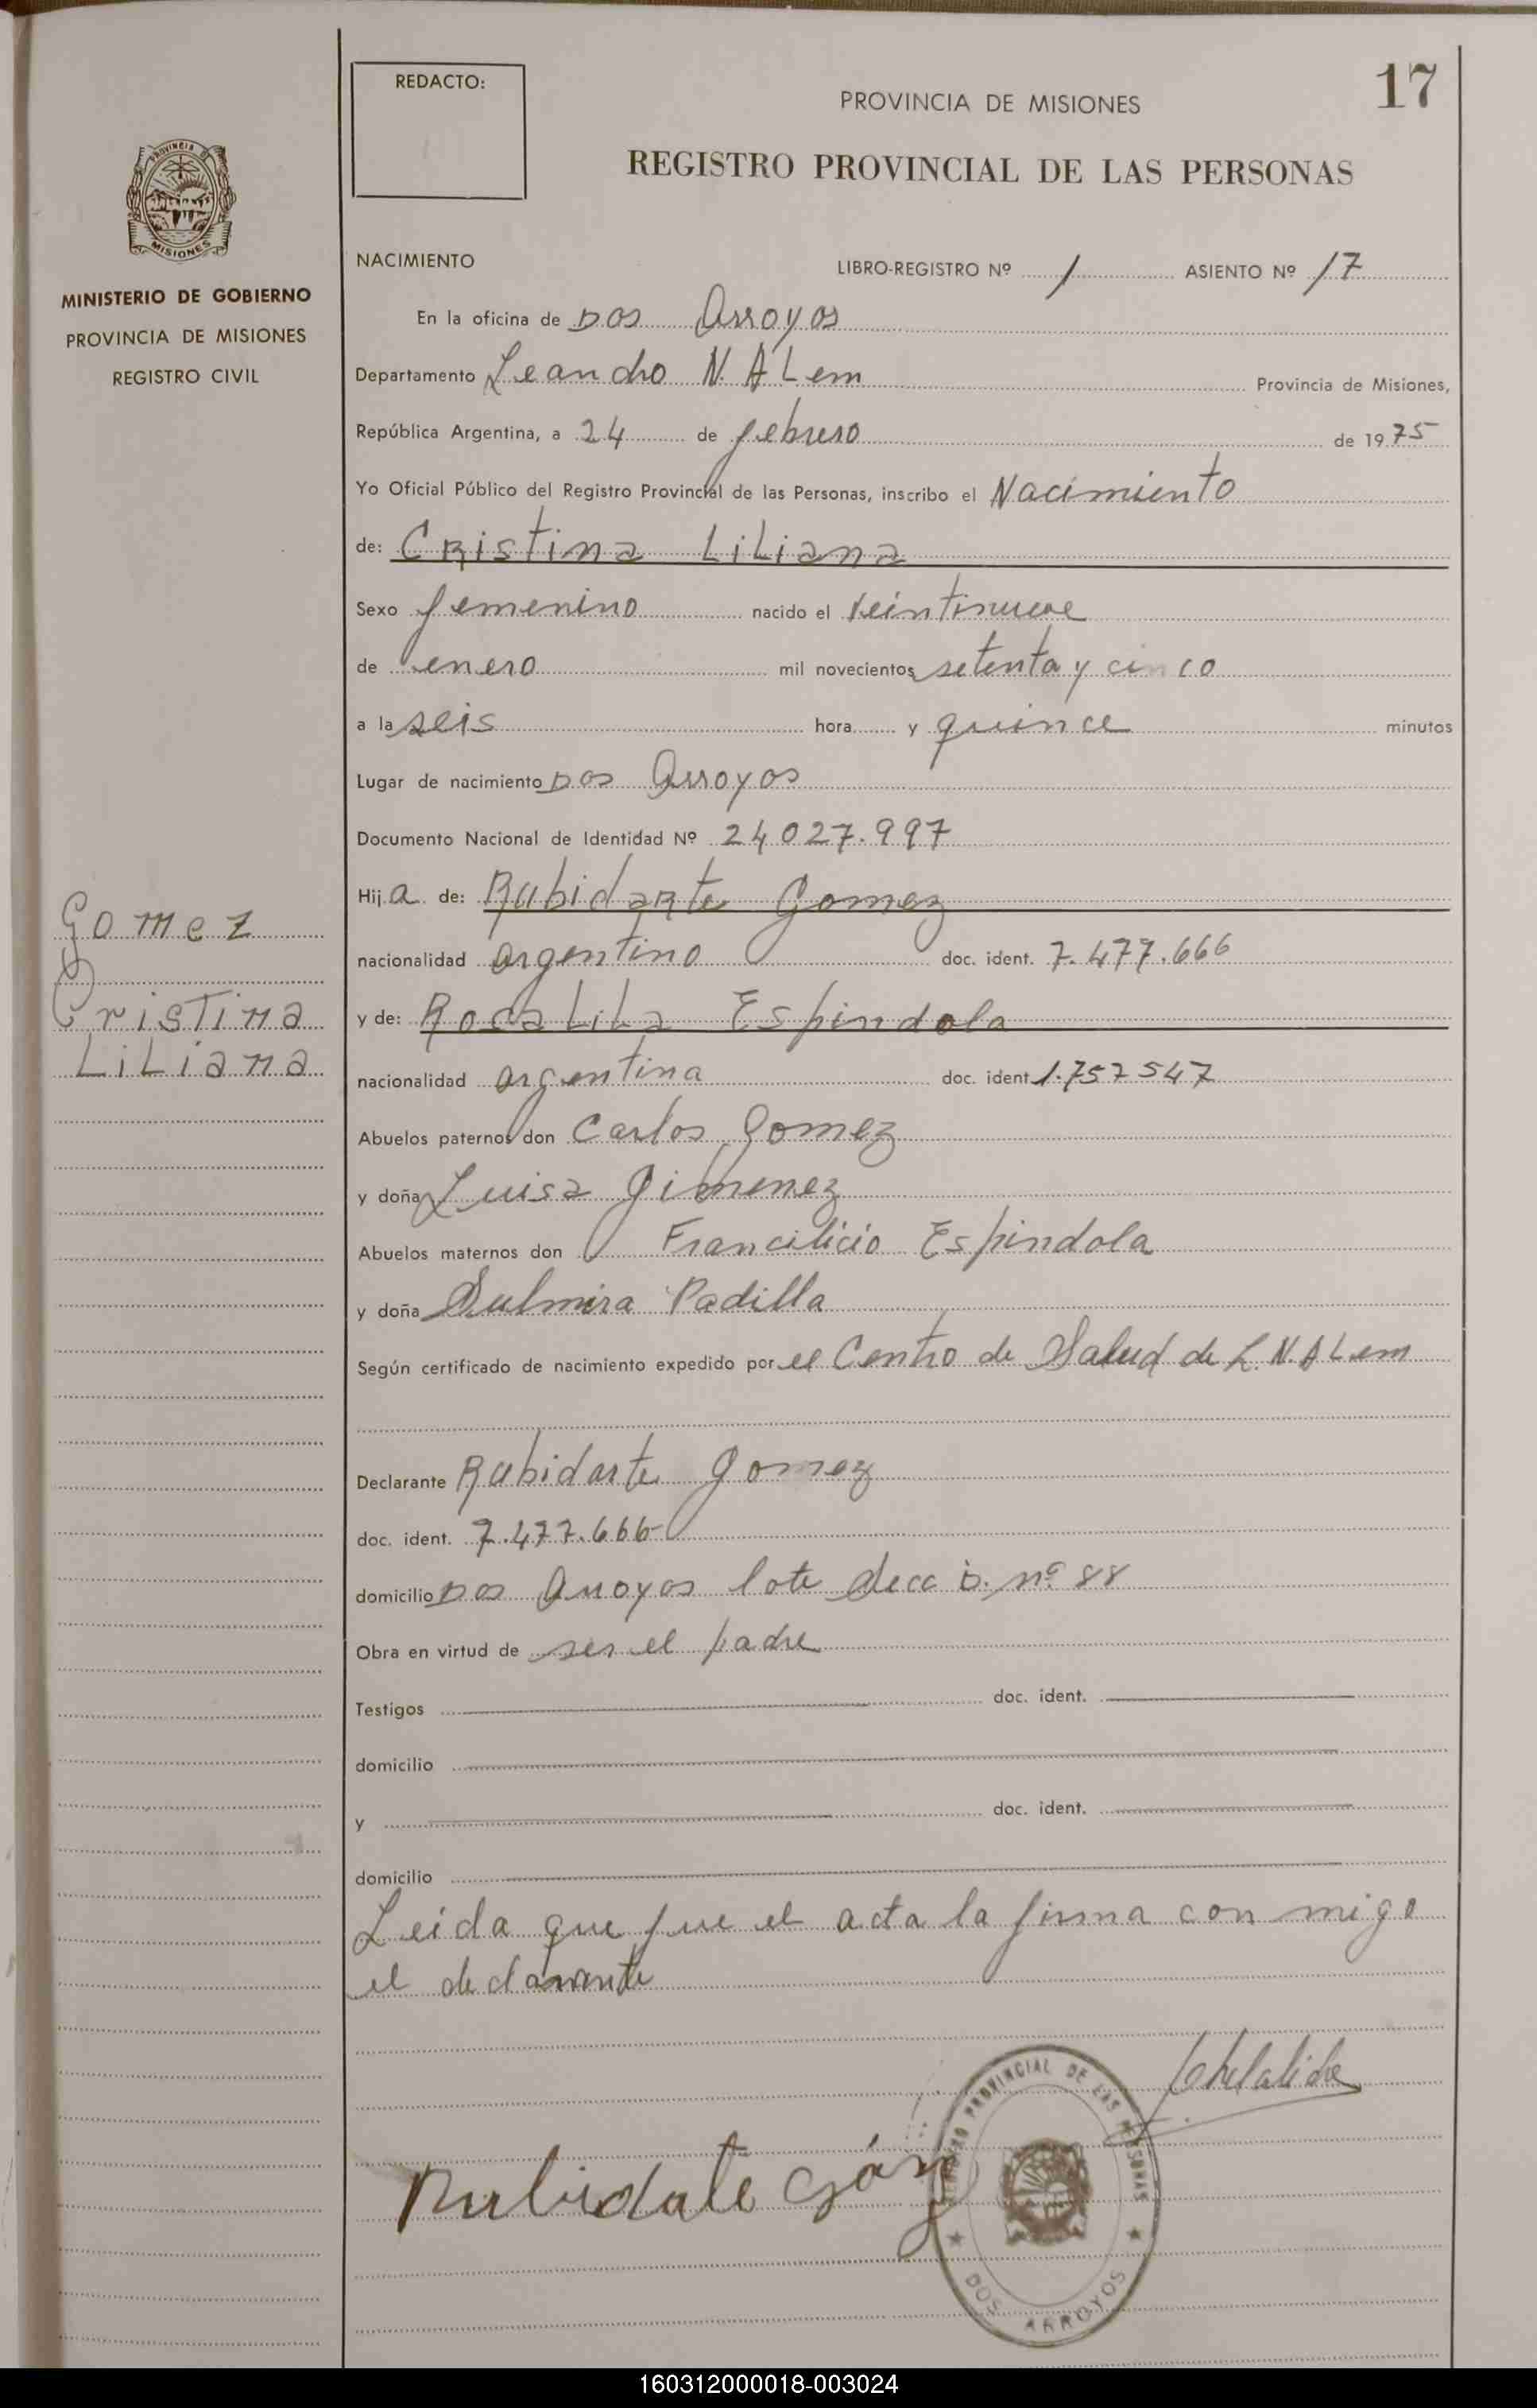 REDACTO:
PROVINCIA DE MISIONES
17
REGISTRO PROVINCIAL DE LAS PERSONAS
PROVINCIA DE
MISIONES
MINISTERIO DE GOBIERNO
PROVINCIA DE MISIONES
REGISTRO CIVIL
NACIMIENTO
LIBRO-REGISTRO Nº 1 ASIENTO Nº 17
En la oficina de Dos Arroyos
Departamento Leandro N. ALem Provincia de Misiones,
República Argentina, a 24 de febrero de 1975
Yo Oficial Público del Registro Provincial de las Personas, inscribo el Nacimiento
de: Cristina Liliana
Sexo femenino nacido el veintinueve
de enero mil novecientos setenta y cinco
a la seis hora y quince minutos
Lugar de nacimiento Dos Arroyos
Documento Nacional de Identidad Nº 24027.997
Hija de: Rubidarte Gomez
nacionalidad argentino doc. ident. 7.477.666
y de: Rosa Lila Espindola
nacionalidad argentina doc. ident 1.757547
Gomez
Cristina
Liliana
Abuelos paternos don Carlos Gomez
y doña Luisa Gimenez
Abuelos maternos don Francilicio Espindola
y doña Dulmira Padilla
Según certificado de nacimiento expedido por el Centro de Salud de L.N.ALem
Declarante Rubidarte Gomez
doc. ident. 7.477.666
domicilio Dos Arroyos lote nº 88
Obra en virtud de ser el padre
Testigos doc. ident.
domicilio
y doc. ident.
domicilio
Leida que fue el acta la firma con migo
el declarante
REGISTRO PROVINCIAL DE LAS PERSONAS
DOS ARROYOS
160312000018-003024